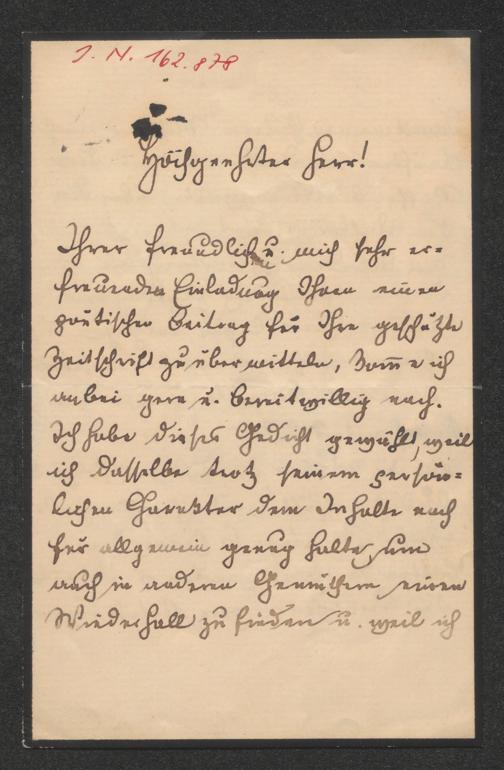 J. N. 162.878
Hochgeehrter Herr!
Ihrer freundlich u. mich sehr er=
freuenden Einladung Ihnen einen
poetischen Beitrag für Ihre geschätzte
Zeitschrift zu übermitteln, komme ich
anbei gern u. bereitwillig nach.
Ich habe dieses Gedicht gewählt, weil
ich dasselbe trotz seinem persön=
lichen Charakter dem Inhalte nach
für allgemein genug halte, um
auch in anderen Gemüthern einen
Wiederhall zu finden u. weil ich